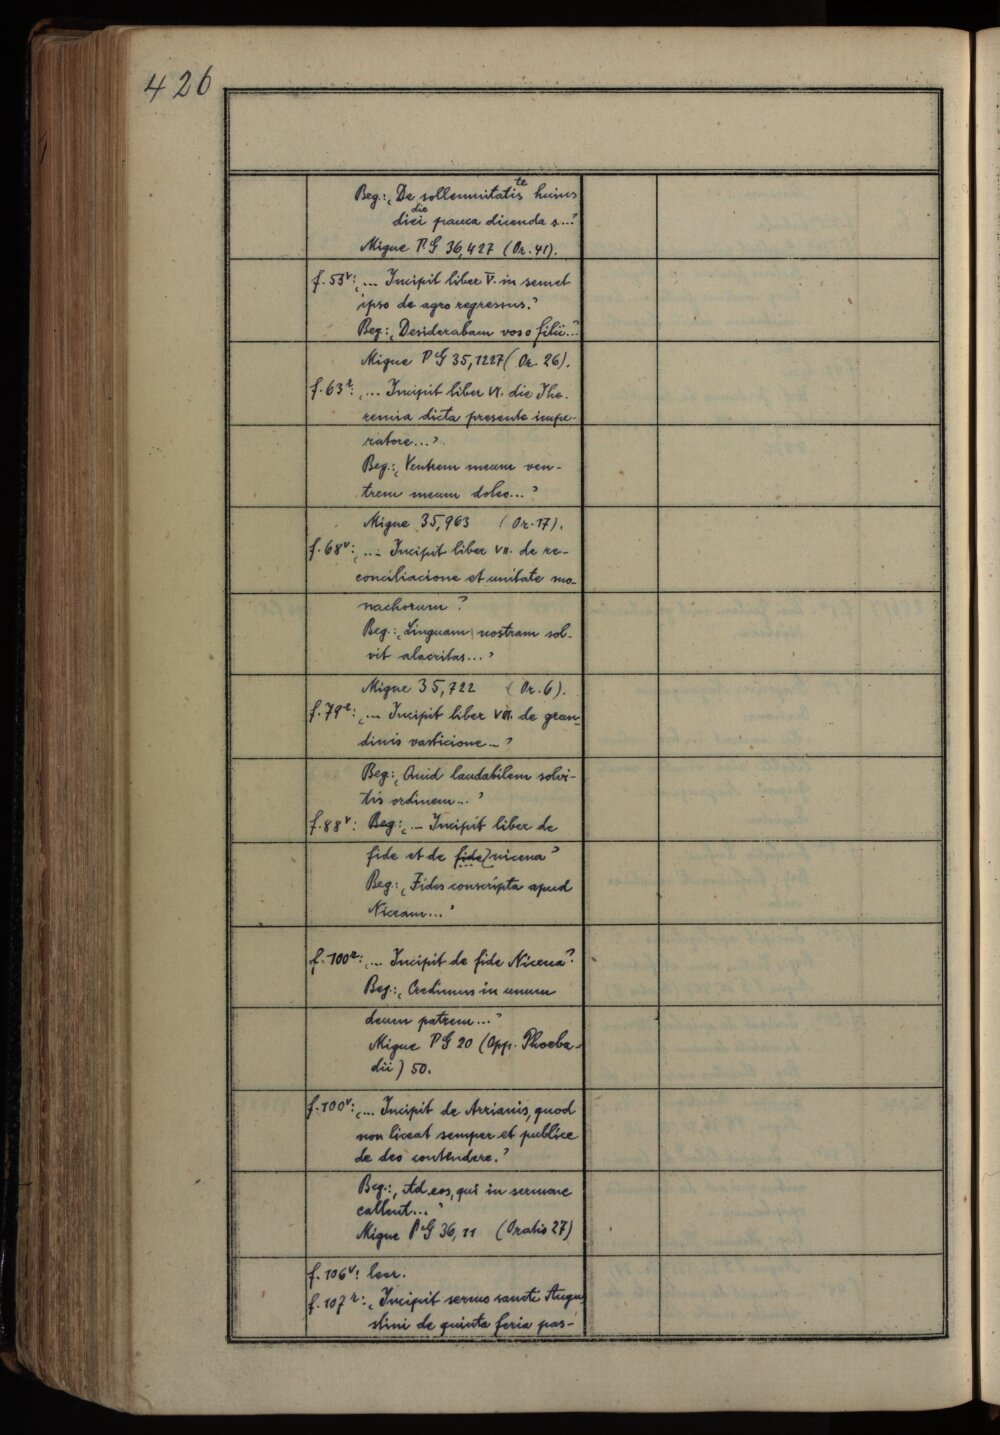 426
Beg.: ‚De sollemnitatis te huius
diei die pauca dicenda s...‘
Migne PG 36,427 (Or. 41).
f. 53v: ‚... Incipit liber V. in semet
ipso de agro regressus.‘
Beg.: ‚Desiderabam vos o filii...‘
Migne PG 35,1227 (Or. 26).
f. 63r: ‚... Incipit liber VI. die Jhe-
remia dicta presente impe-
ratore...‘
Beg.: ‚Ventrem meum ven-
trem meum doleo...‘
Migne 35,963 (Or. 17).
f. 68v: ‚... Incipit liber VII. de re-
conciliacione et unitate mo-
nachorum‘
Beg.: ‚Linguam nostram sol-
vit alacritas...‘
Migne 35,722 (Or. 6).
f. 79r: ‚... Incipit liber VIII. de gran-
dinis vasticione...‘
Beg.: ‚Quid laudabilem solvi-
tis ordinem...‘
f. 88v: Beg: ‚... Incipit liber de
fide et de fide nicena‘
Beg.: ‚Fides conscripta apud
Niceam...‘
f. 100r: ‚... Incipit de fide Nicena‘
Beg.: ‚Credimus in unum
deum patrem...‘
Migne PG 20 (Opp. Phoeba-
dii) 50.
f. 100v: ‚... Incipit de Arrianis, quod
non liceat semper et publice
de deo contendere.‘
Beg.: ‚Ad eos, qui in sermone
callent...‘
Migne PG 36,11 (Oratio 27)
f. 106v: leer.
f. 107r: ‚Incipit sermo sancti Augu-
stini de quinta feria pas-